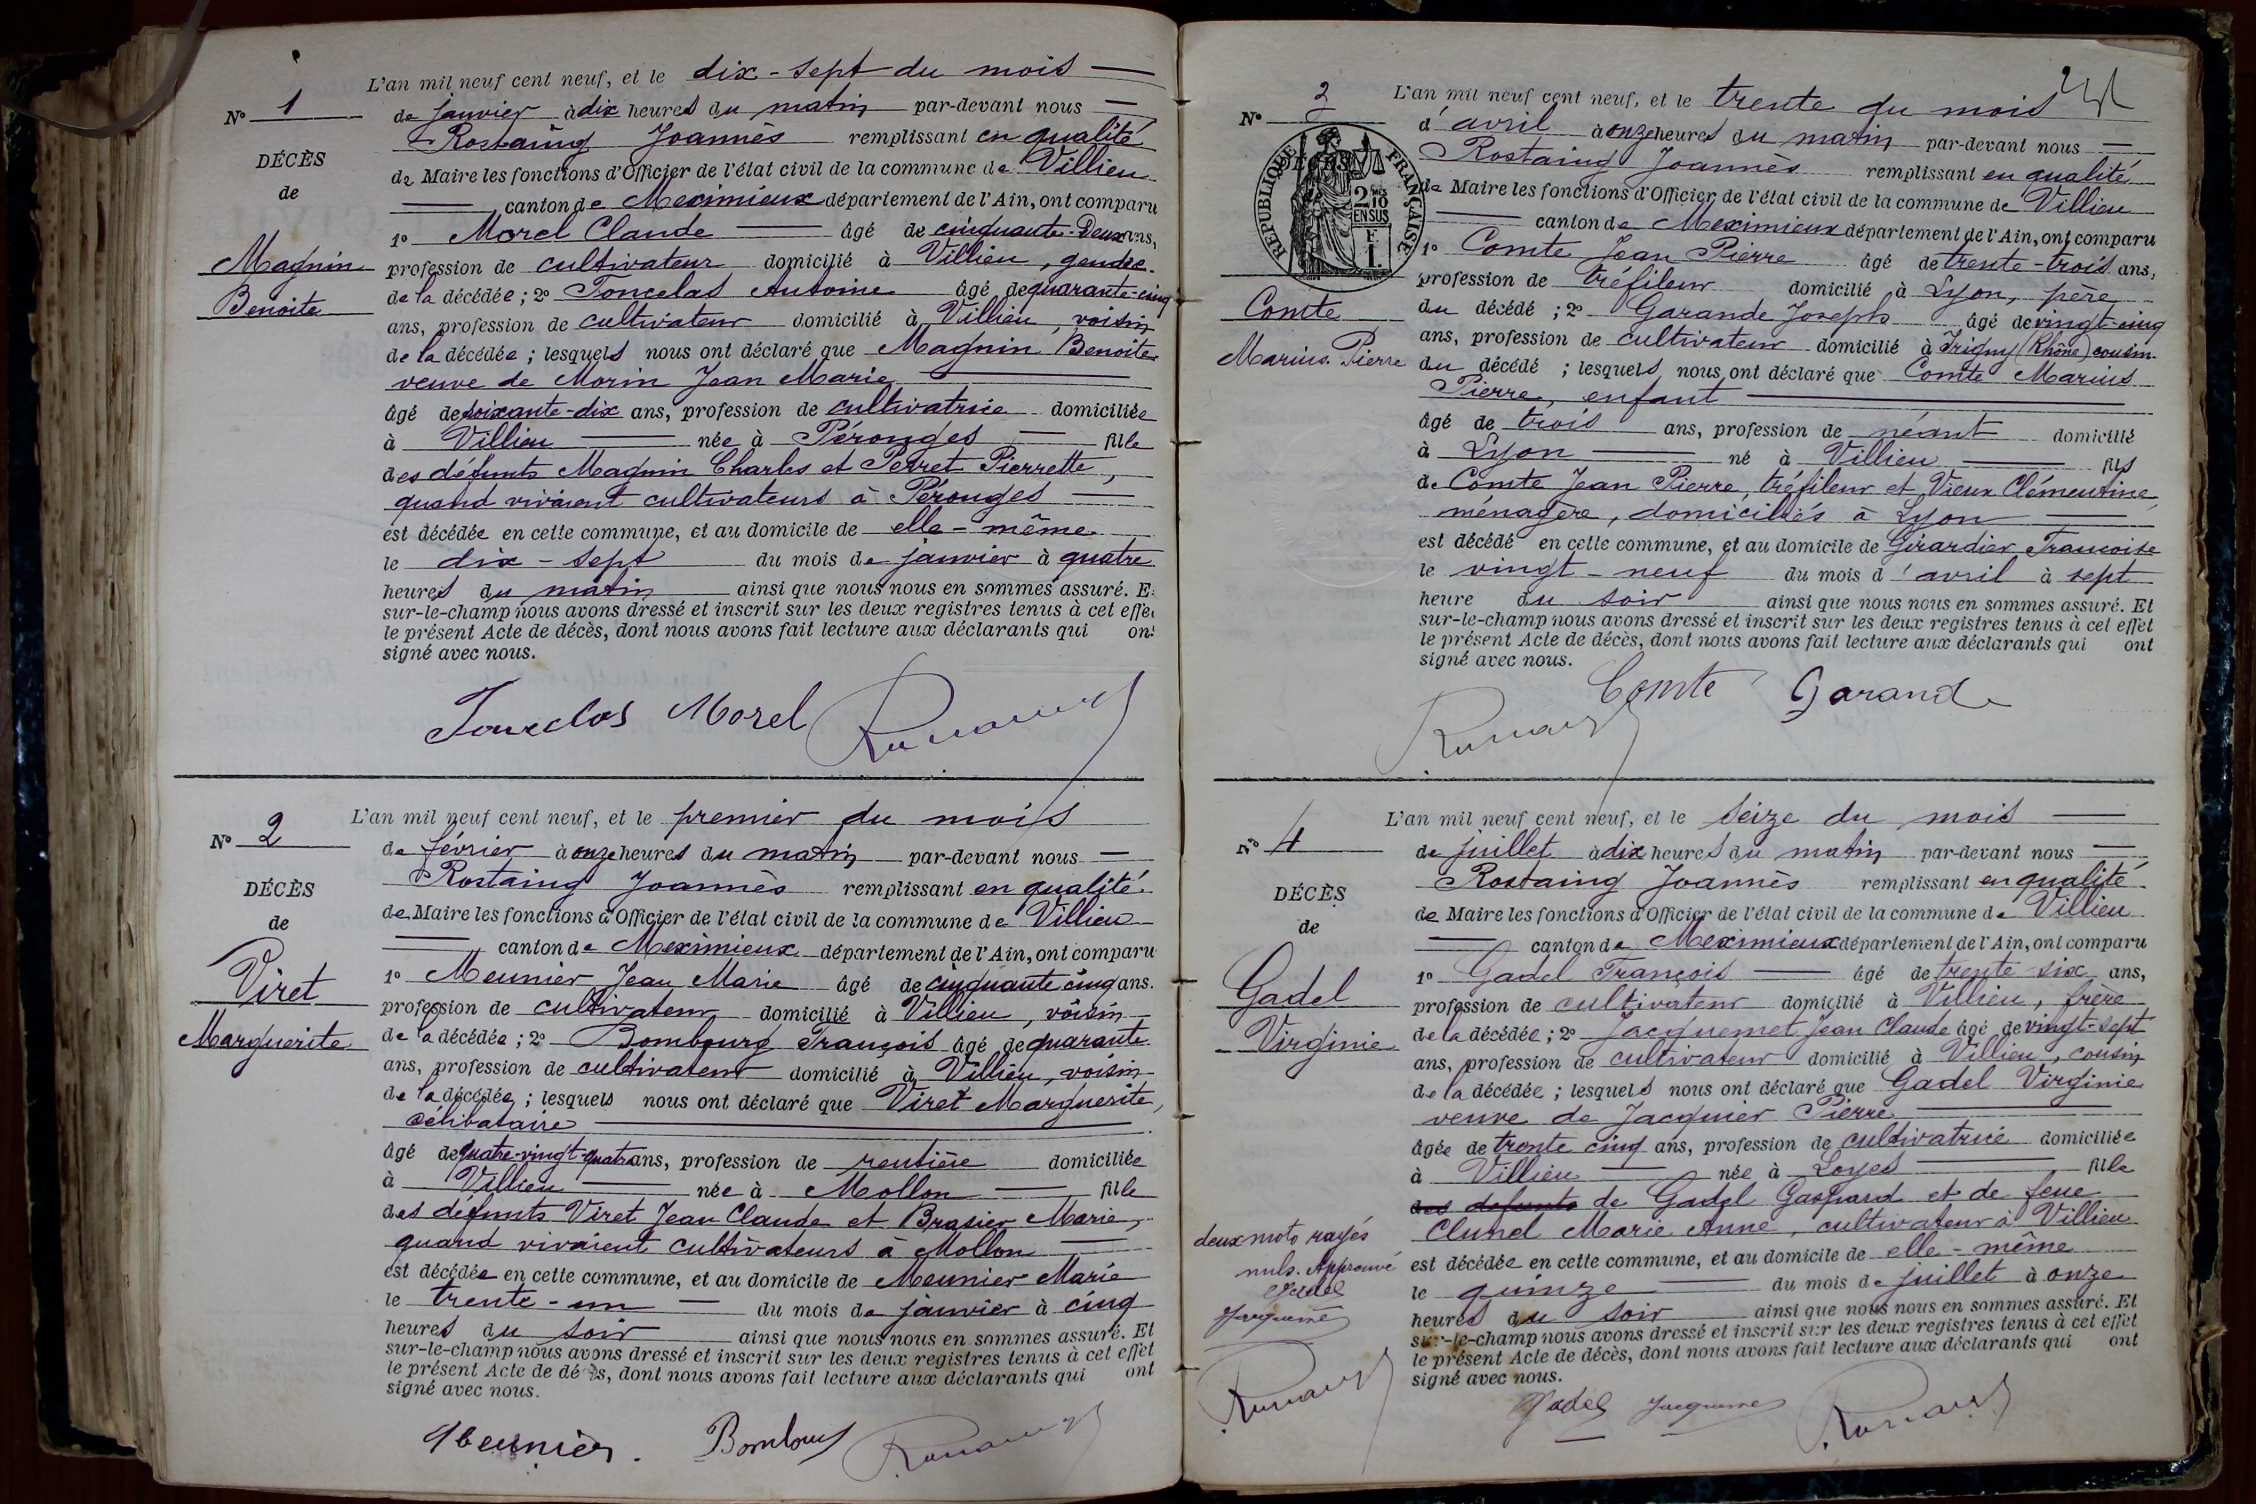 N° 1
DÉCÈS
de
Magnin
Benoite
L'an mil neuf cent neuf, et le dix-sept du mois
de janvier à dix heures du matin par-devant nous
Rostaing Joannès remplissant en qualité
de Maire les fonctions d'Officier de l'état civil de la commune de Villieu
canton de Meximieux département de l'Ain, ont comparu
1° Morel Claude âgé de cinquante-Deux ans,
profession de cultivateur domicilié à Villieu, gendre
de la décédée ; 2° Antoine âgé de quarante-cinq
ans, profession de cultivateur domicilié à Villieu, voisin
de la décédée ; lesquels nous ont déclaré que Magnin Benoite
veuve de Morin Jean Marie
âgé de soixante-dix ans, profession de cultivatrice domiciliée
à Villieu née à Pérouges fille
des défunts Magnin Charles et Perret Pierrette,
quand vivaient cultivateurs à Pérouges
est décédée en cette commune, et au domicile de elle-même
le dix-sept du mois de janvier à quatre
heures du matin ainsi que nous nous en sommes assuré. E
sur-le-champ nous avons dressé et inscrit sur les deux registres tenus à cet effe
le présent Acte de décès, dont nous avons fait lecture aux déclarants qui ont
signé avec nous.
Morel
N° 2
DÉCÈS
de
Viret
Marguerite
L'an mil neuf cent neuf, et le premier du mois
de février à onze heures du matin par-devant nous
Rostaing Joannès remplissant en qualité
de Maire les fonctions d'Officier de l'état civil de la commune de Villieu
canton de Meximieux département de l'Ain, ont comparu
1° Meunier Jean Marie âgé de cinquante cinq ans.
profession de cultivateur domicilié à Villieu, voisin
de la décédée ; 2° Bombourg François âgé de quarante
ans, profession de cultivateur domicilié à Villieu, voisin
de la décédée ; lesquels nous ont déclaré que Viret Marguerite,
célibataire
âgé de quatre-vingt-quatre ans, profession de rentière domiciliée
à Villieu née à Mollon fille
des défunts Viret Jean Claude et Brasier Marie,
quand vivaient cultivateurs à Mollon
est décédée en cette commune, et au domicile de Meunier Marie
le trente-un du mois de janvier à cinq
heures du soir ainsi que nous nous en sommes assuré. Et
sur-le-champ nous avons dressé et inscrit sur les deux registres tenus à cet effet
le présent Acte de décès, dont nous avons fait lecture aux déclarants qui ont
signé avec nous.
Meunier. Bombourg
N° 3
RÉPUBLIQUE FRANÇAISE
2/10 EN SUS
Comte
Marius Pierre
L'an mil neuf cent neuf, et le trente du mois
d'avril à onze heures du matin par-devant nous
Rostaing Joannès remplissant en qualité
de Maire les fonctions d'Officier de l'état civil de la commune de Villieu
canton de Meximieux département de l'Ain, ont comparu
1° Comte Jean Pierre âgé de trente-trois ans,
profession de tréfileur domicilié à Lyon, père
du décédé ; 2° Garande Joseph âgé de vingt-cinq
ans, profession de cultivateur domicilié à Irigny (Rhône) cousin
du décédé ; lesquels nous ont déclaré que Comte Marius
Pierre, enfant
âgé de trois ans, profession de néant domicilié
à Lyon né à Villieu fils
de Comte Jean Pierre, tréfileur et Vieux Clémentine
ménagère, domiciliés à Lyon
est décédé en cette commune, et au domicile de Girardier Françoise
le vingt-neuf du mois d'avril à sept
heure du soir ainsi que nous nous en sommes assuré. Et
sur-le-champ nous avons dressé et inscrit sur les deux registres tenus à cet effet
le présent Acte de décès, dont nous avons fait lecture aux déclarants qui ont
signé avec nous.
Comte Garande
N° 4
DÉCÈS
de
Gadel
Virginie
L'an mil neuf cent neuf, et le seize du mois
de juillet à dix heures du matin par-devant nous
Rostaing Joannès remplissant en qualité
de Maire les fonctions d'Officier de l'état civil de la commune de Villieu
canton de Meximieux département de l'Ain, ont comparu
1° Gadel François âgé de trente-six ans,
profession de cultivateur domicilié à Villieu, frère
de la décédée ; 2° Jacquemet Jean Claude âgé de vingt-sept
ans, profession de cultivateur domicilié à Villieu, cousin
de la décédée ; lesquels nous ont déclaré que Gadel Virginie
veuve de Jacquier Pierre
âgée de trente cinq ans, profession de cultivatrice domiciliée
à Villieu née à Loyes fille
des defunts de Gadel Gaspard et de feue
Clunel Marie Anne, cultivateur à Villieu
est décédée en cette commune, et au domicile de elle-même
le quinze du mois de juillet à onze
heures du soir ainsi que nous nous en sommes assuré. Et
sur-le-champ nous avons dressé et inscrit sur les deux registres tenus à cet effet
le présent Acte de décès, dont nous avons fait lecture aux déclarants qui ont
signé avec nous.
deux mots rayés
nuls. Approuvé
Gadel
Gadel